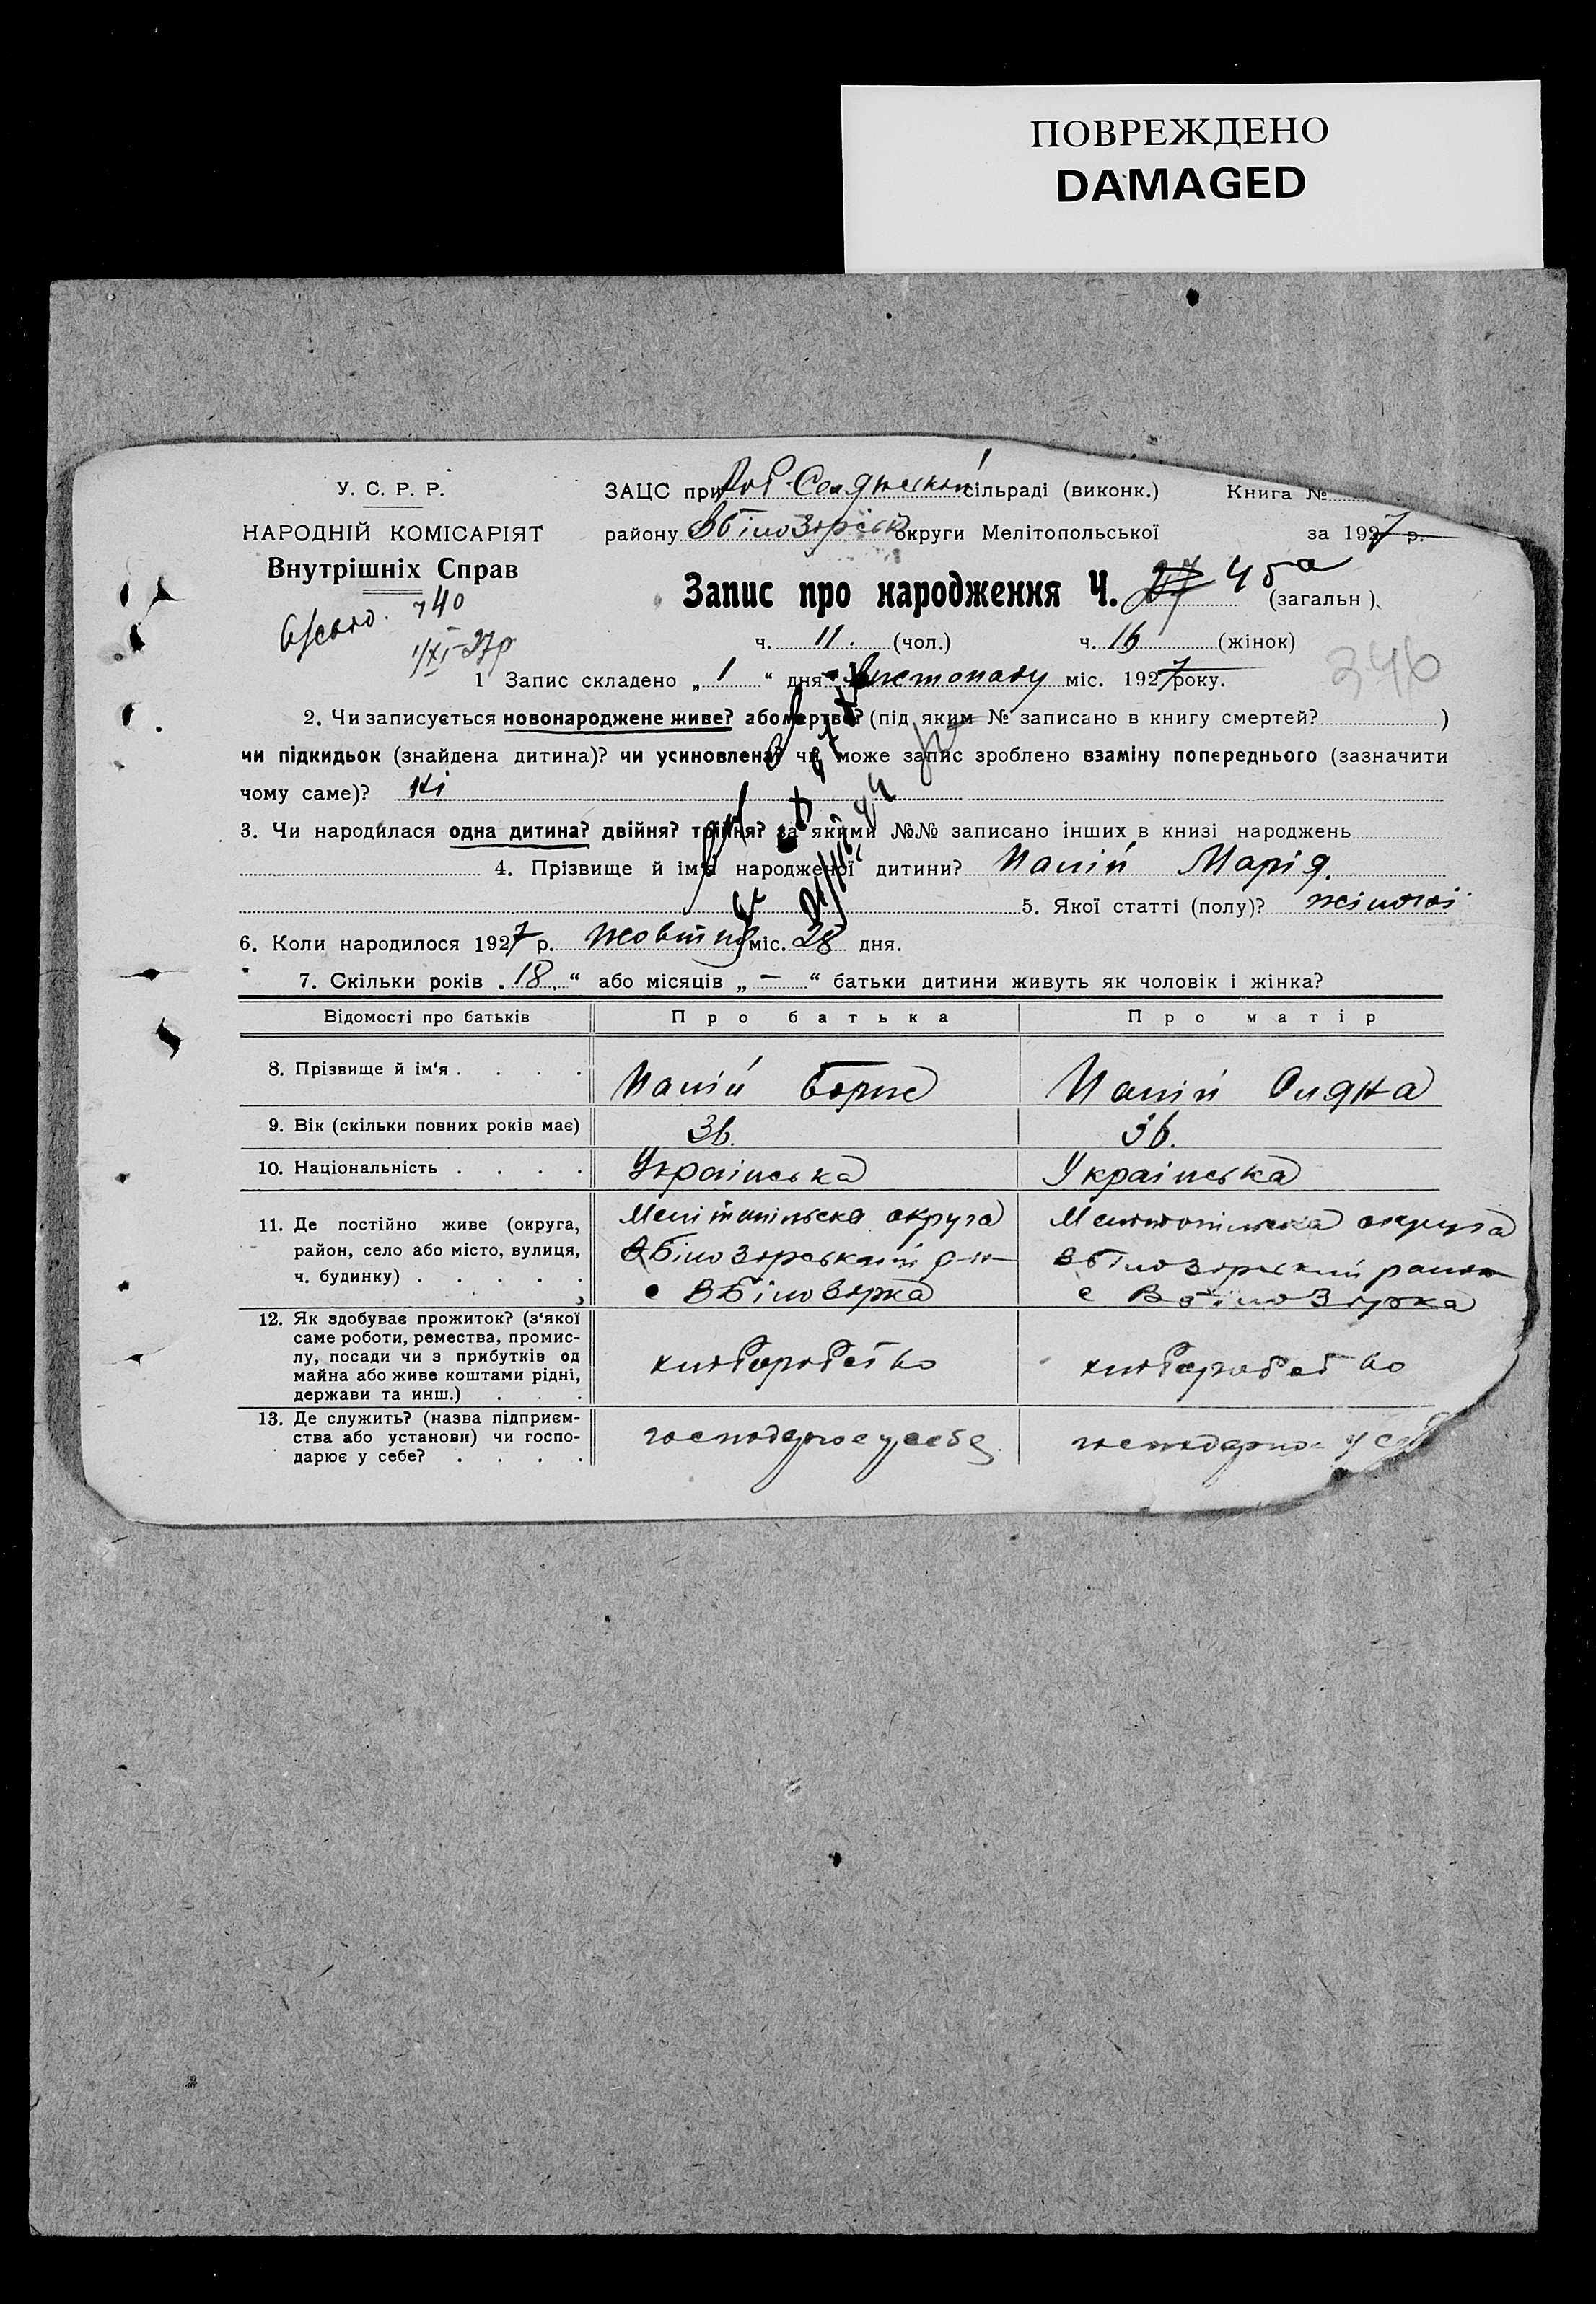 ПОВРЕЖДЕНО
DAMAGED
У. С. Р. Р.
НАРОДНІЙ КОМІСАРІЯТ
Внутрішніх Справ
740
1/XI-27р
ЗАЦС при сільраді (виконк.) Книга №
району ВБілозорськ округи Мелітопольської за 1927 р.
Запис про народження Ч. 27 45а (загальн.)
ч. 11. (чол.) ч. 16 (жінок)
346
1 Запис складено „1“ дня Листопаду міс. 1927 року.
2. Чи записується новонароджене живе? або мертве? (під яким № записано в книгу смертей? )
чи підкидьок (знайдена дитина)? чи усиновлена? чи може запис зроблено взаміну попереднього (зазначити
чому саме)? Ні
3. Чи народилася одна дитина? двійня? трійня? за якими №№ записано інших в книзі народжень
4. Прізвище й ім'я народженої дитини? Папій Марія.
5. Якої статті (полу)? жіночої
6. Коли народилося 1927 р. Жовтня міс. 28 дня.
7. Скільки років „18“ або місяців „—“ батьки дитини живуть як чоловік і жінка?
Відомості про батьків Про батька Про матір
8. Прізвище й ім'я . . . . Папій Борис Папій Оляна
9. Вік (скільки повних років має) 36. 36.
10. Національність . . . . Українська Українська
11. Де постійно живе (округа, Мелітопільска округа Мелітопільска округа
район, село або місто, вулиця, ВБілозорський р-н ВБілозорський район
ч. будинку) . . . . . с ВБілозорка с ВБілозорка
12. Як здобуває прожиток? (з'якої
саме роботи, ремества, промис-
лу, посади чи з прибутків од хліборобство хліборобство
майна або живе коштами рідні,
держави та инш.) . . .
13. Де служить? (назва підприєм-
ства або установи) чи госпо- господарює у себе господарює у себе
дарює у себе? . . . .